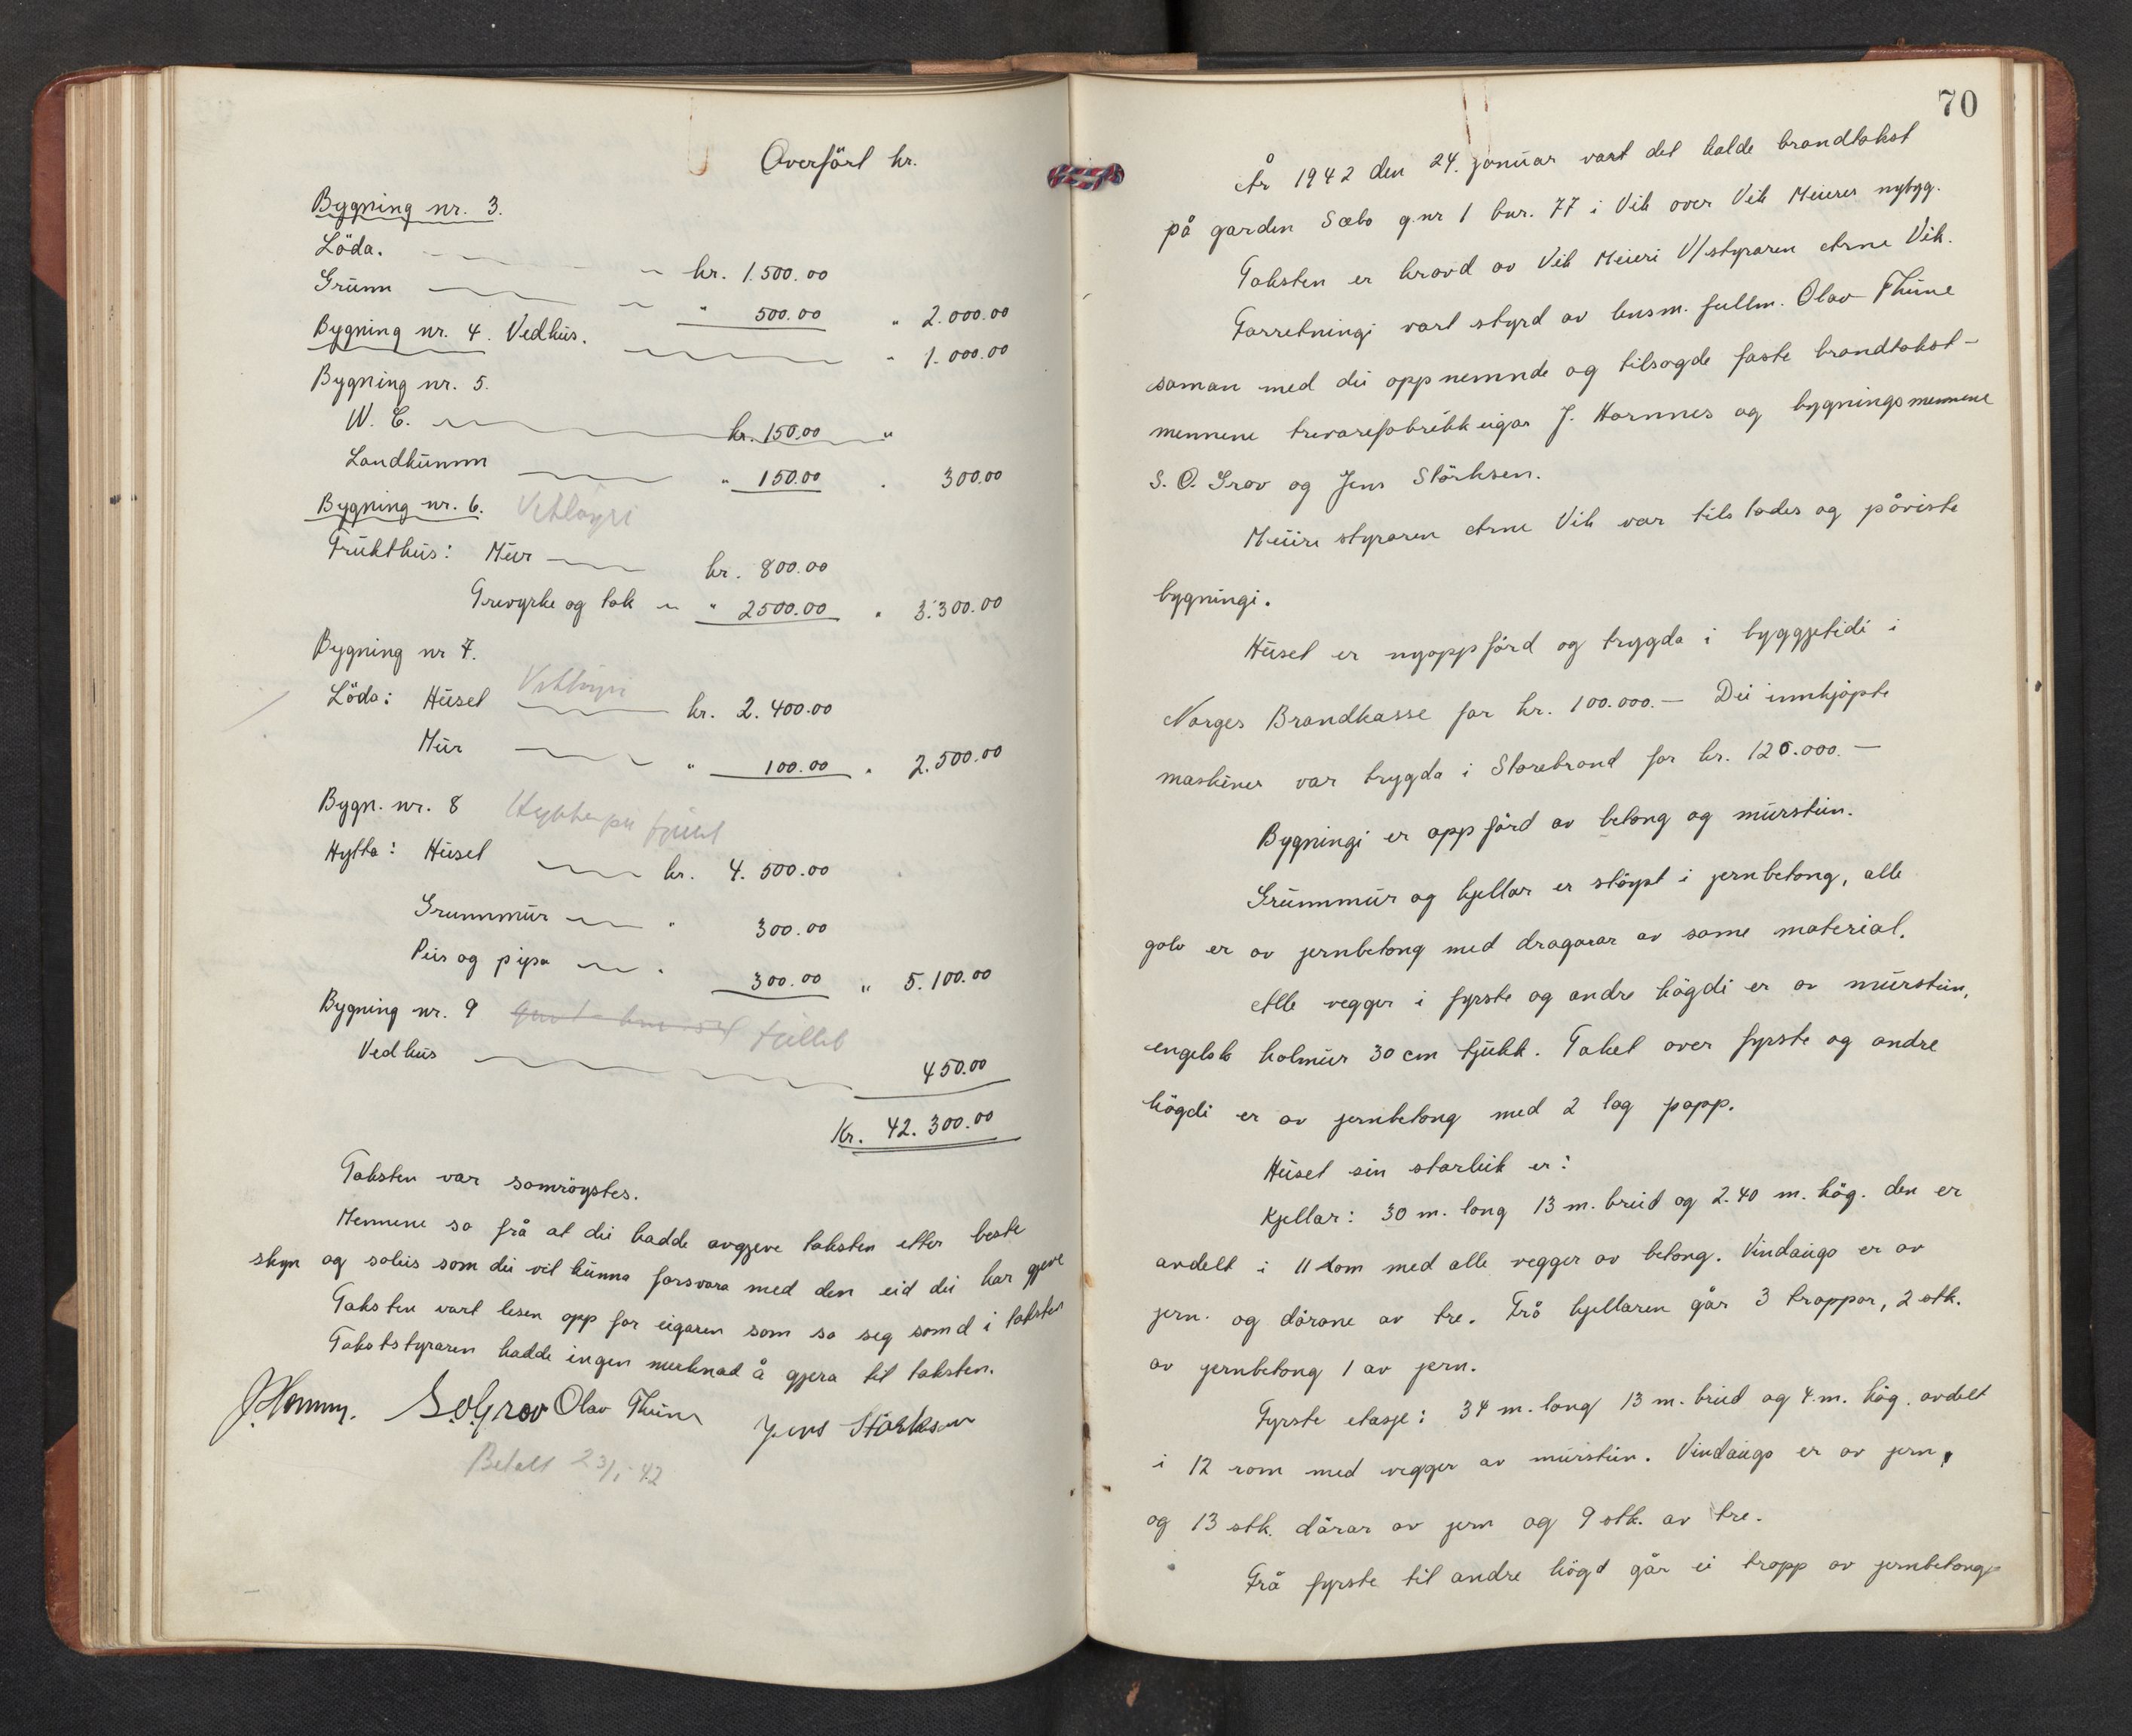 Overfört kr.
Bygning nr. 3.
Löda. kr. 1.500.00
Grunn " 500.00 " 2.000.00
Bygning nr. 4. Vedhus. " 1.000.00
Bygning nr. 5.
W. C. kr. 150.00 "
Landkumm " 150.00 " 300.00
Bygning nr. 6. Vetlöyri
Frukthus: Mur kr. 800.00
Trevyrke og tak " 2500.00 " 3.300.00
Bygning nr 7.
Löda: Huset Vetlöyri kr. 2.400.00
Mur " 100.00 " 2.500.00
Bygn. nr. 8
Hytta: Huset kr. 4.500.00
Grunnmur " 300.00
Peis og pipa " 300.00 " 5.100.00
Bygning nr. 9
Vedhus 450.00
Kr. 42.300.00
Taksten var samröystes.
Mennene sa frå at dei hadde avgjeve taksten etter beste
skyn og soleis som dei vil kunna forsvara med den eid dei har gjeve
Taksten vart lesen opp for eigaren som sa seg samd i taksten
Takststyraren hadde ingen merknad å gjera til taksten.
S.O.Grov Olav Thune Jens Störksen
Betalt 23/1-42
70
År 1942 den 24. januar vart det halde brandtakst
på garden Sæbo g.nr 1 bnr. 77 i Vik over Vik Meieres nybygg.
Taksten er kravd av Vik Meieri V/styraren Arne Vik.
Forretningi vart styrd av lensm. fullm. Olav Thune
saman med dei oppnemnde og tilsagde faste brandtakst-
mennene trevarefabrikkeigar J. Hornnes og bygningsmennene
S. O. Grov og Jens Störksen.
Meieri styraren Arne Vik var tilstades og påviste
bygningi.
Huset er nyoppförd og trygda i byggjetidi i
Norges Brandkasse for kr. 100.000.— Dei innkjöpte
maskiner var trygda i Storebrand for kr. 120.000.—
Bygningi er oppförd av betong og murstein.
Grunnmur og kjellar er stöypt i jernbetong, alle
golv er av jernbetong med dragarar av same material.
Alle vegger i fyrste og andre högdi er av murstein,
engelsk holmur 30 cm tjukk. Taket over fyrste og andre
högdi er av jernbetong med 2 lag papp.
Huset sin storleik er:
Kjellar: 30 m. lang 13 m. breid og 2.40 m. hög. den er
avdelt i 11 rom med alle vegger av betong. Vindaugo er av
jern. og dörane av tre. Frå kjellaren går 3 trappor, 2 stk.
av jernbetong 1 av jern.
Fyrste etasje: 34 m. lang 13 m. breid og 4.m. hög. avdelt
i 12 rom med vegger av murstein. Vindaugo er av jern,
og 13 stk. dörar av jern og 9 stk. av tre.
Frå fyrste til andre högd går ei trapp av jernbetong